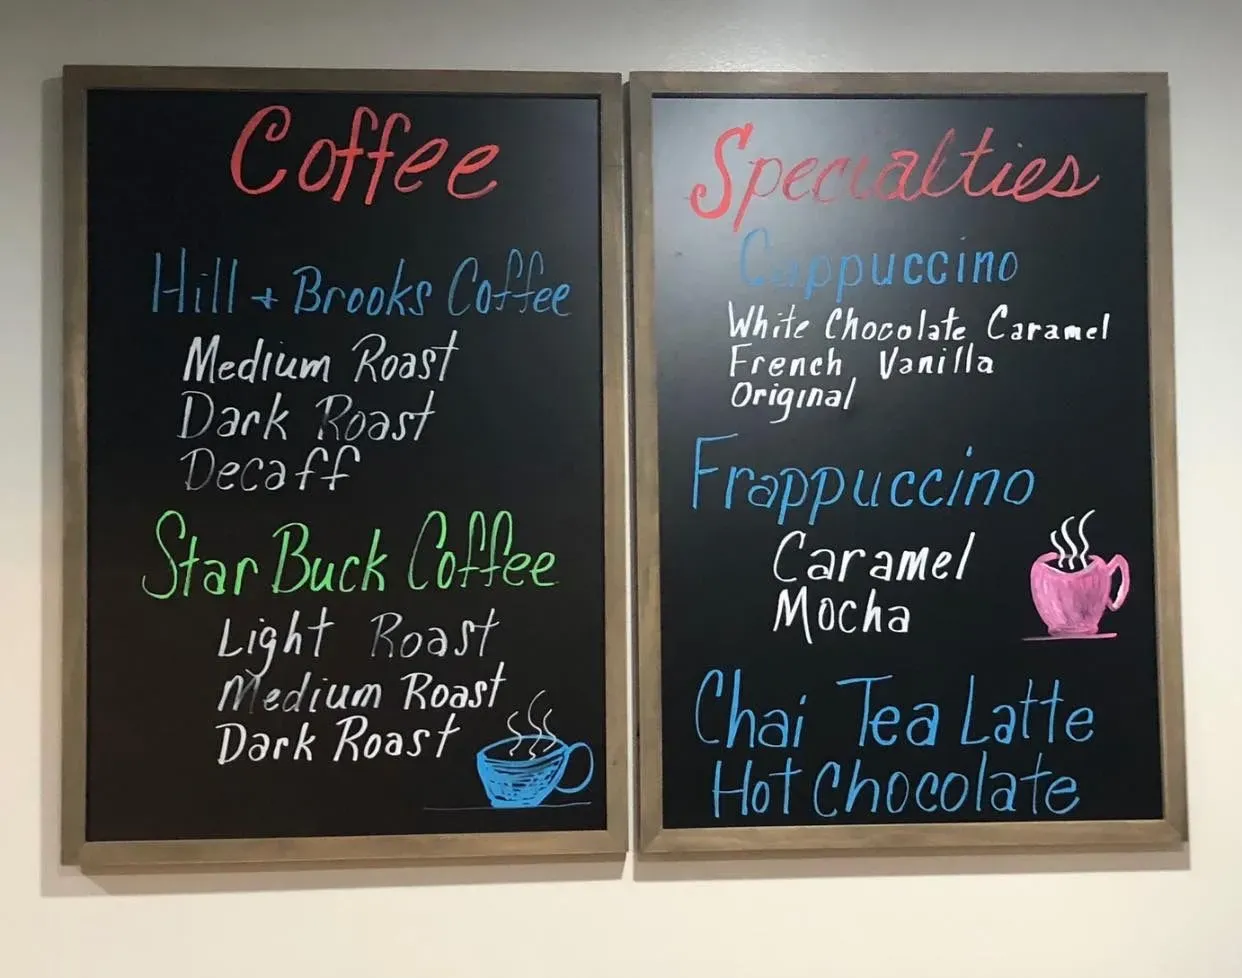 Coffee
Hill + Brooks Coffee
Medium Roast
Dark Roast
Decaff
Star Buck Coffee
Light Roast
Medium Roast
Dark Roast
Specialties
Cappuccino
White Chocolate Caramel
French Vanilla
Original
Frappuccino
Caramel
Mocha
Chai Tea Latte
Hot Chocolate